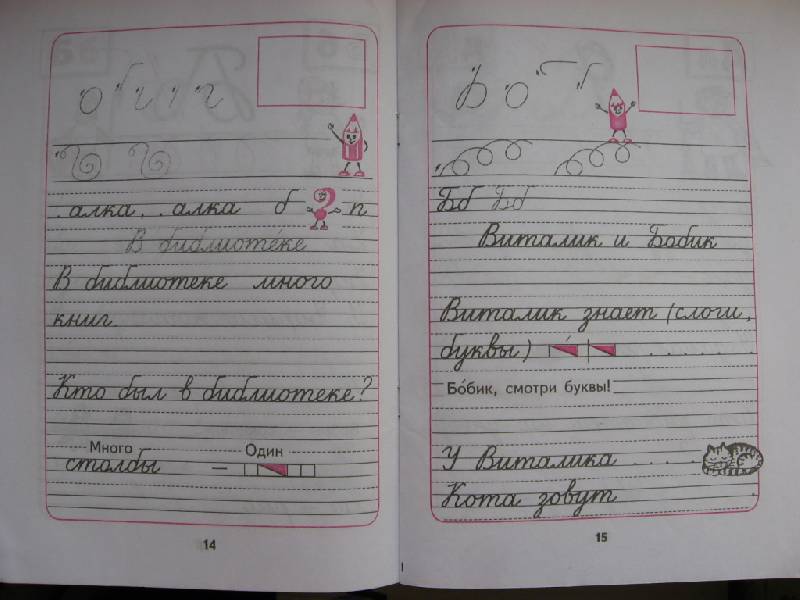 о б и г
.алка, .алка б ? п
В библиоте́ке
В библиотеке много
книг.
Кто был в библиотеке?
Много Один
столбы —
14
Б о
Бб Бб
Виталик и Бобик
Виталик знает (слоги,
буквы)
Бо́бик, смотри буквы!
У Виталика . . . .
Кота зовут .
15